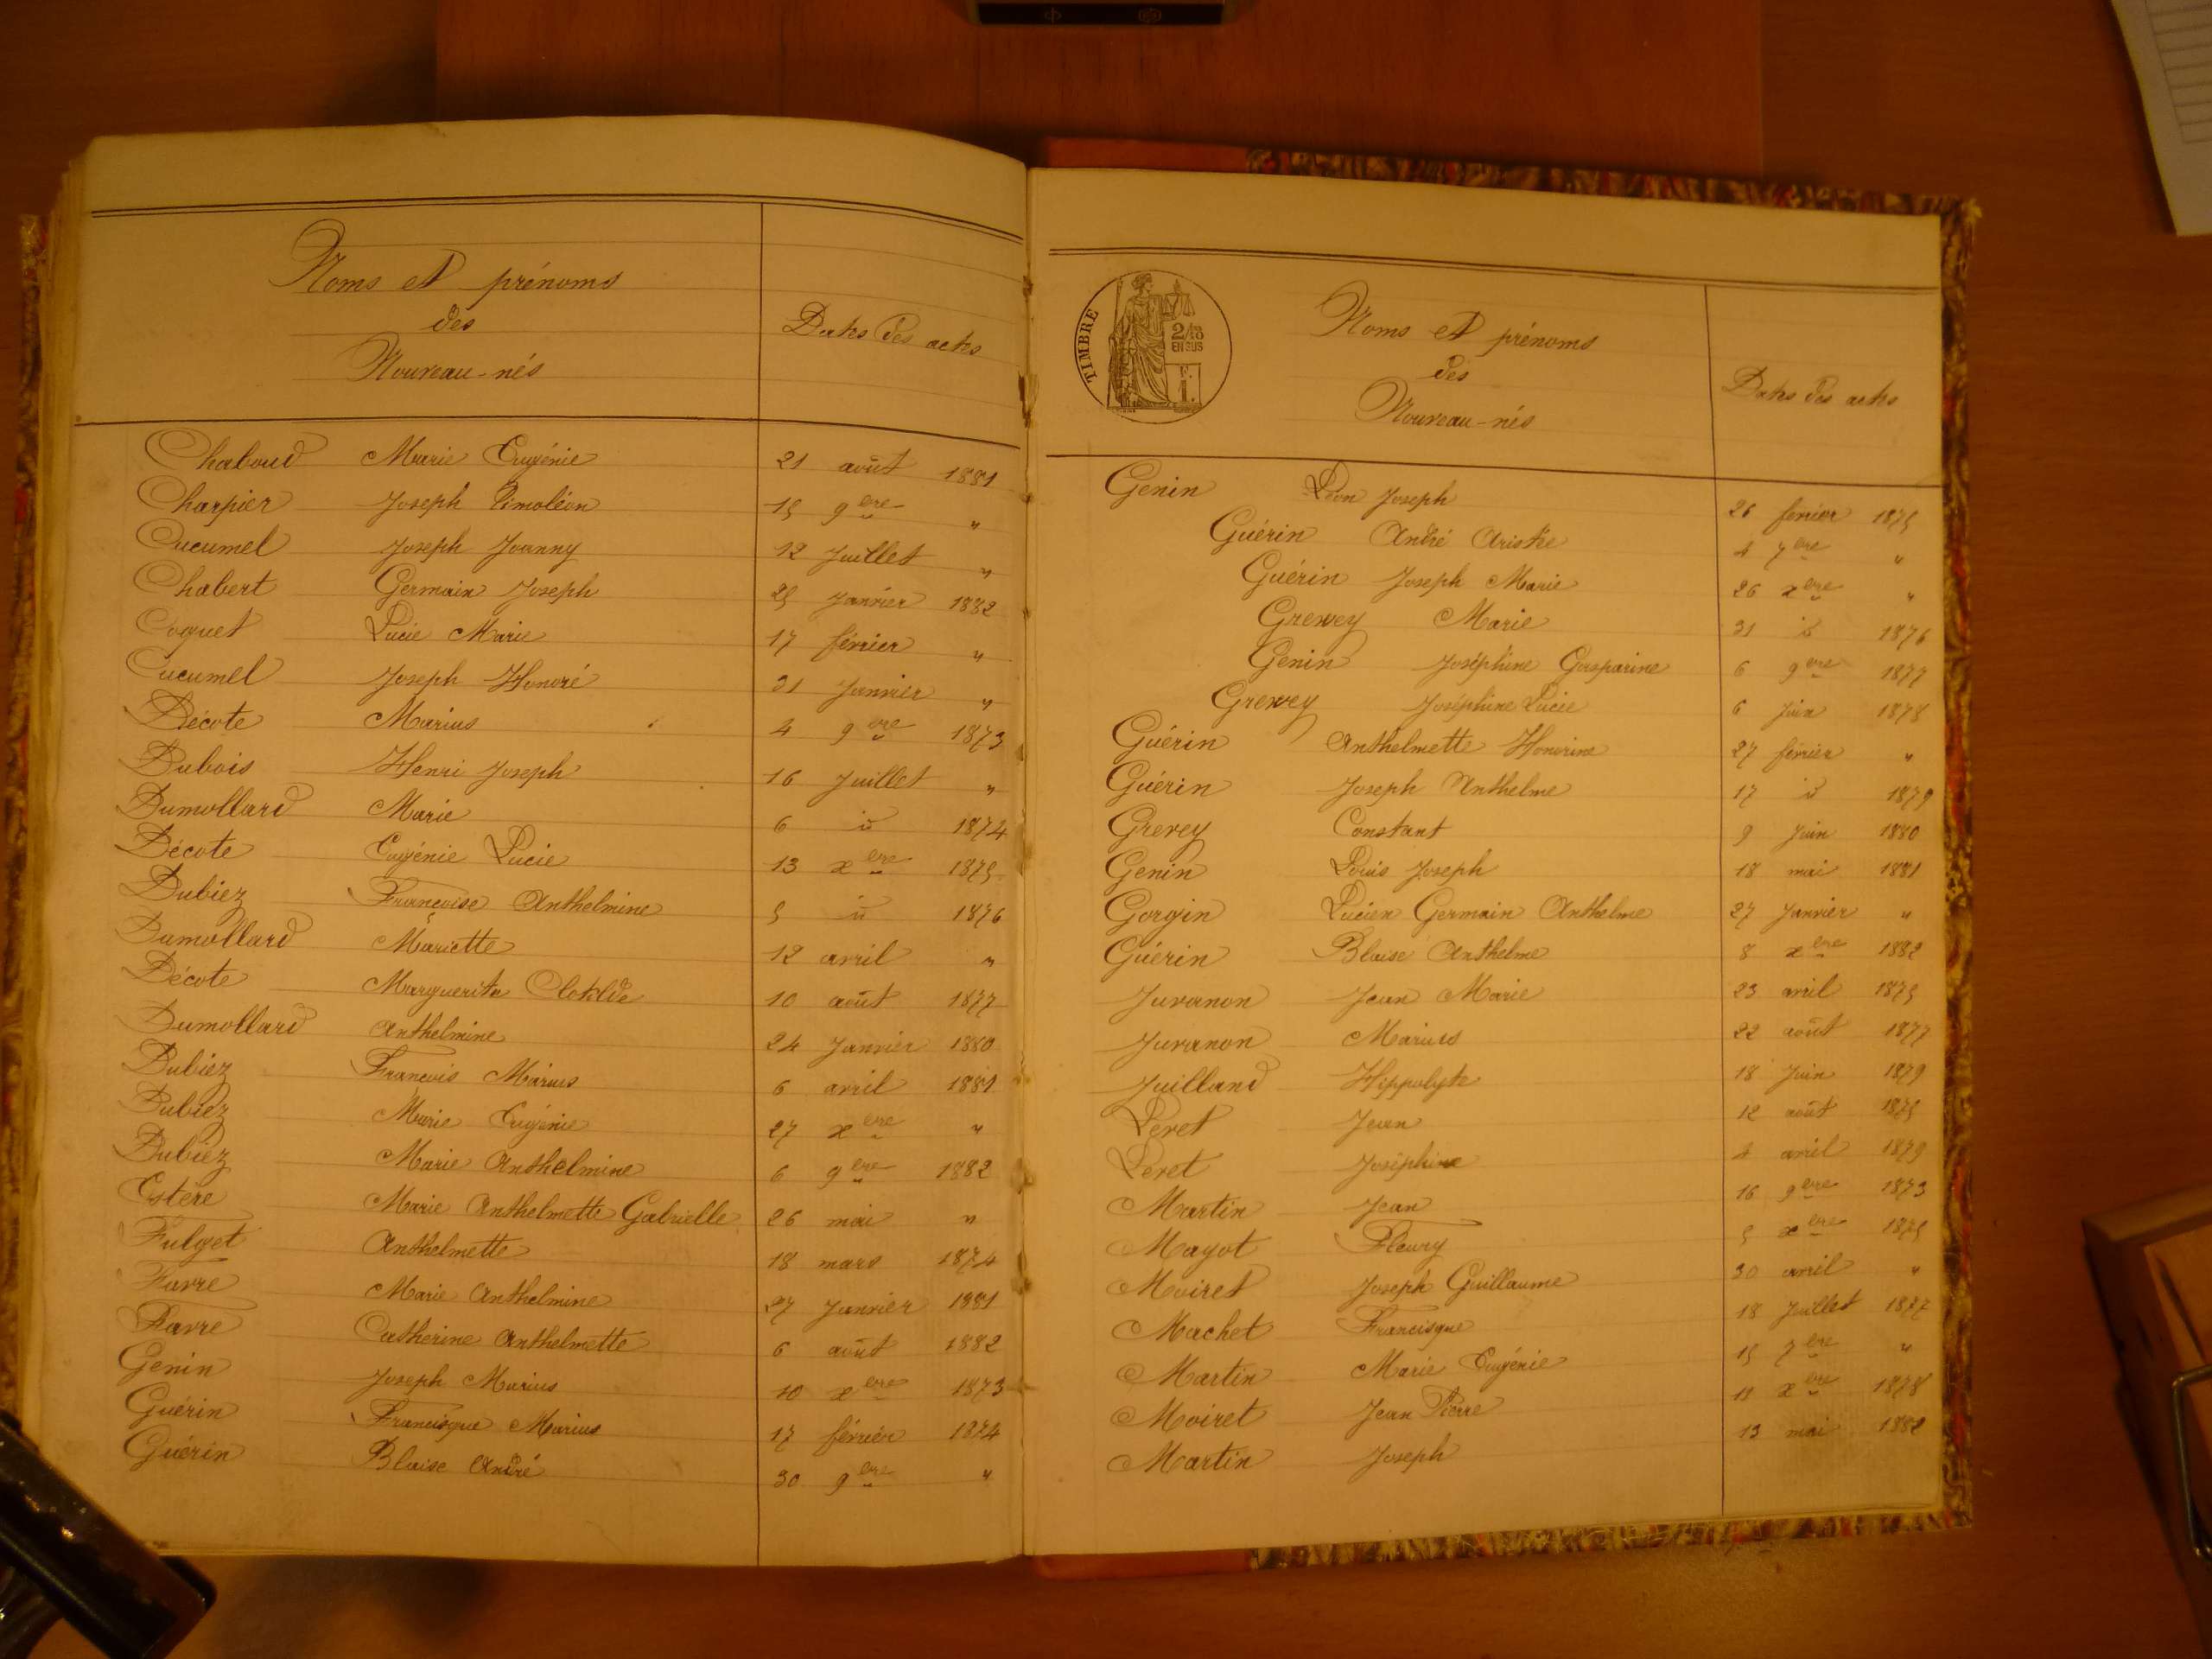 Noms et prénoms
des
Nouveau-nés
Dates des actes
Chaboud Marie Eugénie 21 août 1881
Charpier Joseph Timoléon 15 9bre "
Cucumel Joseph Joanny 12 Juillet "
Chabert Germain Joseph 25 Janvier 1882
Coquet Lucie Marie 17 février "
Cucumel Joseph Honoré 31 Janvier "
Décote Marius 4 9bre 1873
Dubois Henri Joseph 16 Juillet "
Dumollard Marie 6 id 1874
Décote Eugénie Lucie 13 xbre 1875
Dubiez Françoise Anthelmine 5 id 1876
Dumollard Mariette 12 avril "
Décote Marguerite Clotilde 10 août 1877
Dumollard Anthelmine 24 Janvier 1880
Dubiez Francois Marius 6 avril 1881
Dubiez Marie Eugénie 27 xbre "
Dubiez Marie Anthelmine 6 9bre 1882
Estère Marie Anthelmette Gabrielle 26 mai "
Fulget Anthelmette 18 mars 1874
Favre Marie Anthelmine 27 Janvier 1881
Favre Catherine Anthelmette 6 août 1882
Genin Joseph Marius 10 xbre 1873
Guérin Francisque Marius 17 février 1874
Guérin Blaise André 30 9bre "
TIMBRE
2/10
EN SUS
F.
1.
Noms et prénoms
des
Nouveau-nés
Dates des actes
Genin Léon Joseph 26 février 1875
Guérin André Aristée 4 7bre "
Guérin Joseph Marie 26 xbre "
Grevey Marie 31 id 1876
Genin Joséphine Gasparine 6 9bre 1877
Grevey Joséphine Lucie 6 Juin 1878
Guérin Anthelmette Honorine 27 février "
Guérin Joseph Anthelme 17 id 1879
Grevey Constant 9 Juin 1880
Genin Louis Joseph 18 mai 1881
Gorgin Lucien Germain Anthelme 27 Janvier "
Guérin Blaise Anthelme 8 xbre 1882
Juvanon Jean Marie 23 avril 1875
Juvanon Marius 22 août 1877
Juilland Hippolyte 18 Juin 1879
Levet Jean 12 août 1875
Levet Joséphine 4 avril 1879
Martin Jean 16 9bre 1873
Mayot Fleury 5 xbre 1875
Moiret Joseph Guillaume 30 avril "
Machet Francisque 18 Juillet 1877
Martin Marie Eugénie 15 7bre "
Moiret Jean Pierre 11 xbre 1878
Martin Joseph 13 mai 1882